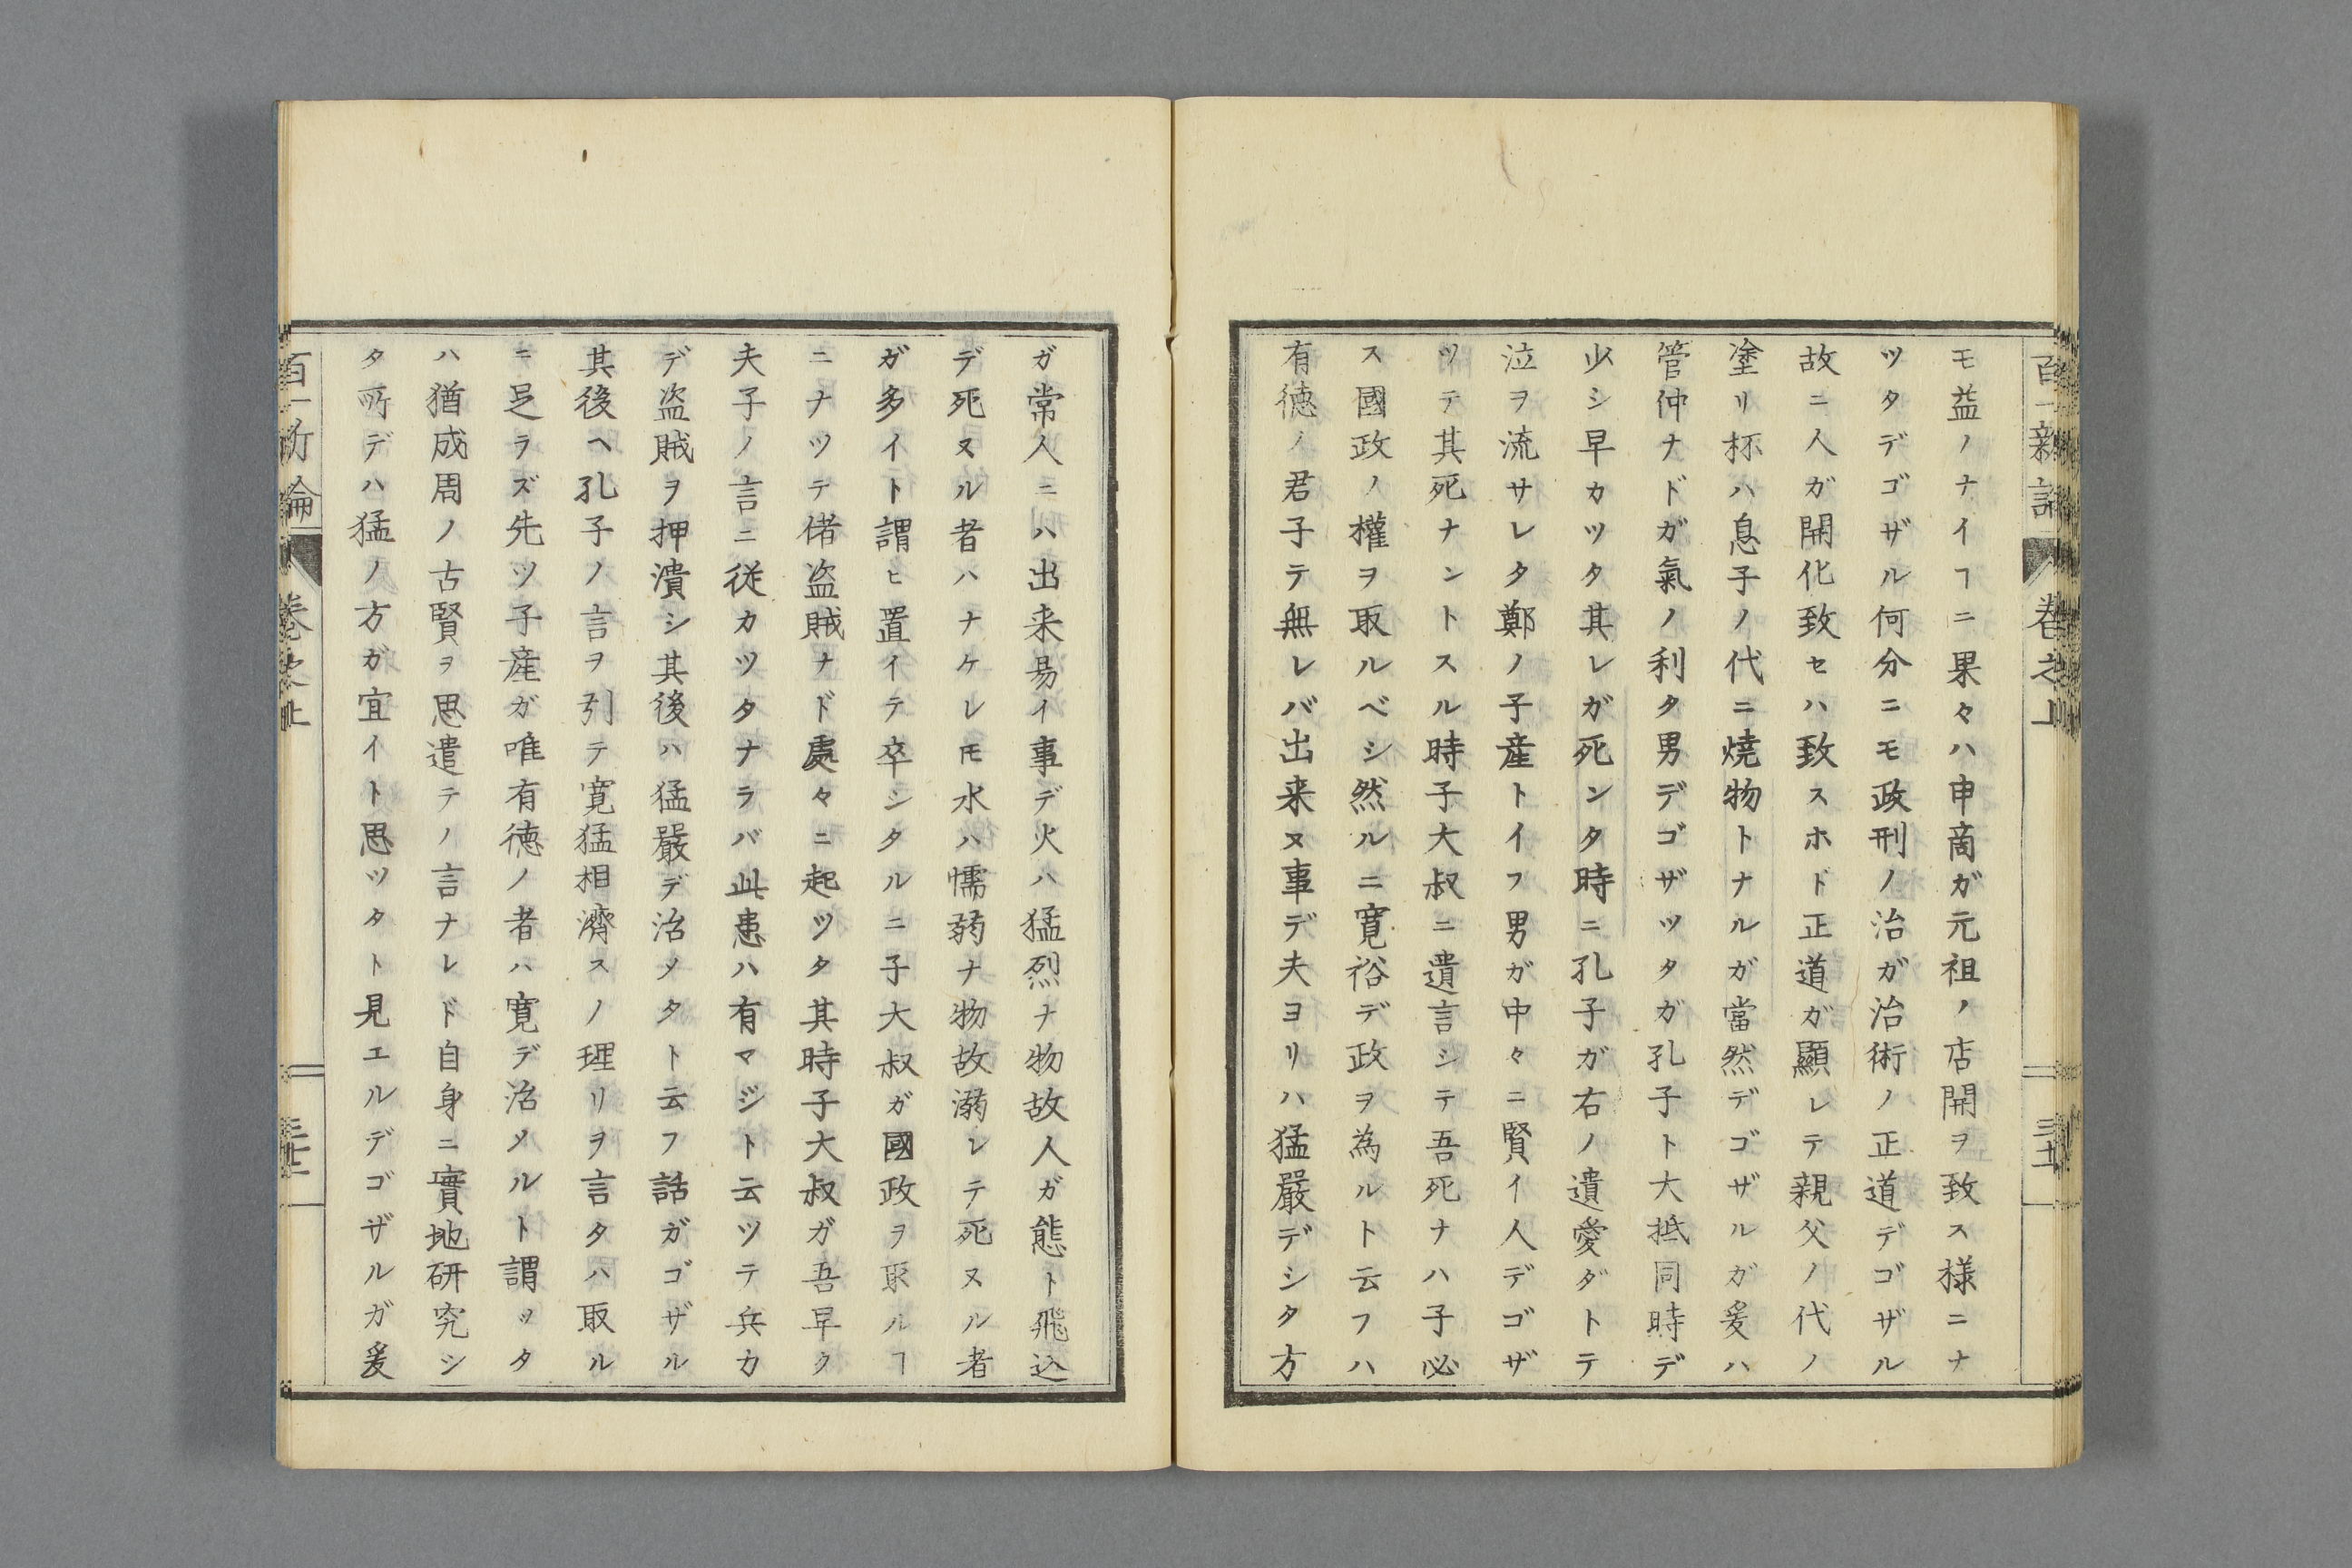 百一新論 巻之上
モ益ノナイヿニ果々ハ申商ガ元祖ノ店開ヲ致ス様ニナ
ツタデゴザル何分ニモ政刑ノ治ガ治術ノ正道デゴザル
故ニ人ガ開化致セハ致スホド正道ガ顯レテ親父ノ代ノ
塗リ杯ハ息子ノ代ニ焼物トナルガ當然デゴザルガ爰ハ
管仲ナドガ氣ノ利タ男デゴザツタガ孔子ト大抵同時デ
少シ早カツタ其レガ死ンタ時ニ孔子ガ右ノ遺愛ダトテ
泣ヲ流サレタ鄭ノ子産トイフ男ガ中々ニ賢イ人デゴザ
ツテ其死ナントスル時子大叔ニ遺言シテ吾死ナハ子必
ス國政ノ權ヲ取ルベシ然ルニ寛裕デ政ヲ為ルト云フハ
有徳ノ君子テ無レバ出来ヌ事デ夫ヨリハ猛嚴デシタ方
ガ常人ニハ出来易イ事デ火ハ猛烈ナ物故人ガ態ト飛込
デ死ヌル者ハナケレ𪜈水ハ懦弱ナ物故溺レテ死ヌル者
ガ多イト謂ヒ置イテ卒シタルニ子大叔ガ國政ヲ取ルヿ
ニナツテ偖盗賊ナド處々ニ起ツタ其時子大叔ガ吾早ク
夫子ノ言ニ従カツタナラバ此患ハ有マジト云ツテ兵力
デ盗賊ヲ押潰シ其後ハ猛嚴デ治メタト云フ話ガゴザル
其後ヘ孔子ノ言ヲ引テ寛猛相濟スノ理リヲ言タハ取ル
ニ足ラズ先ツ子産ガ唯有徳ノ者ハ寛デ治メルト謂ツタ
ハ猶成周ノ古賢ヲ思遣テノ言ナレド自身ニ實地研究シ
タ所デハ猛ノ方ガ宜イト思ツタト見エルデゴザルガ爰
百一新論 巻之上